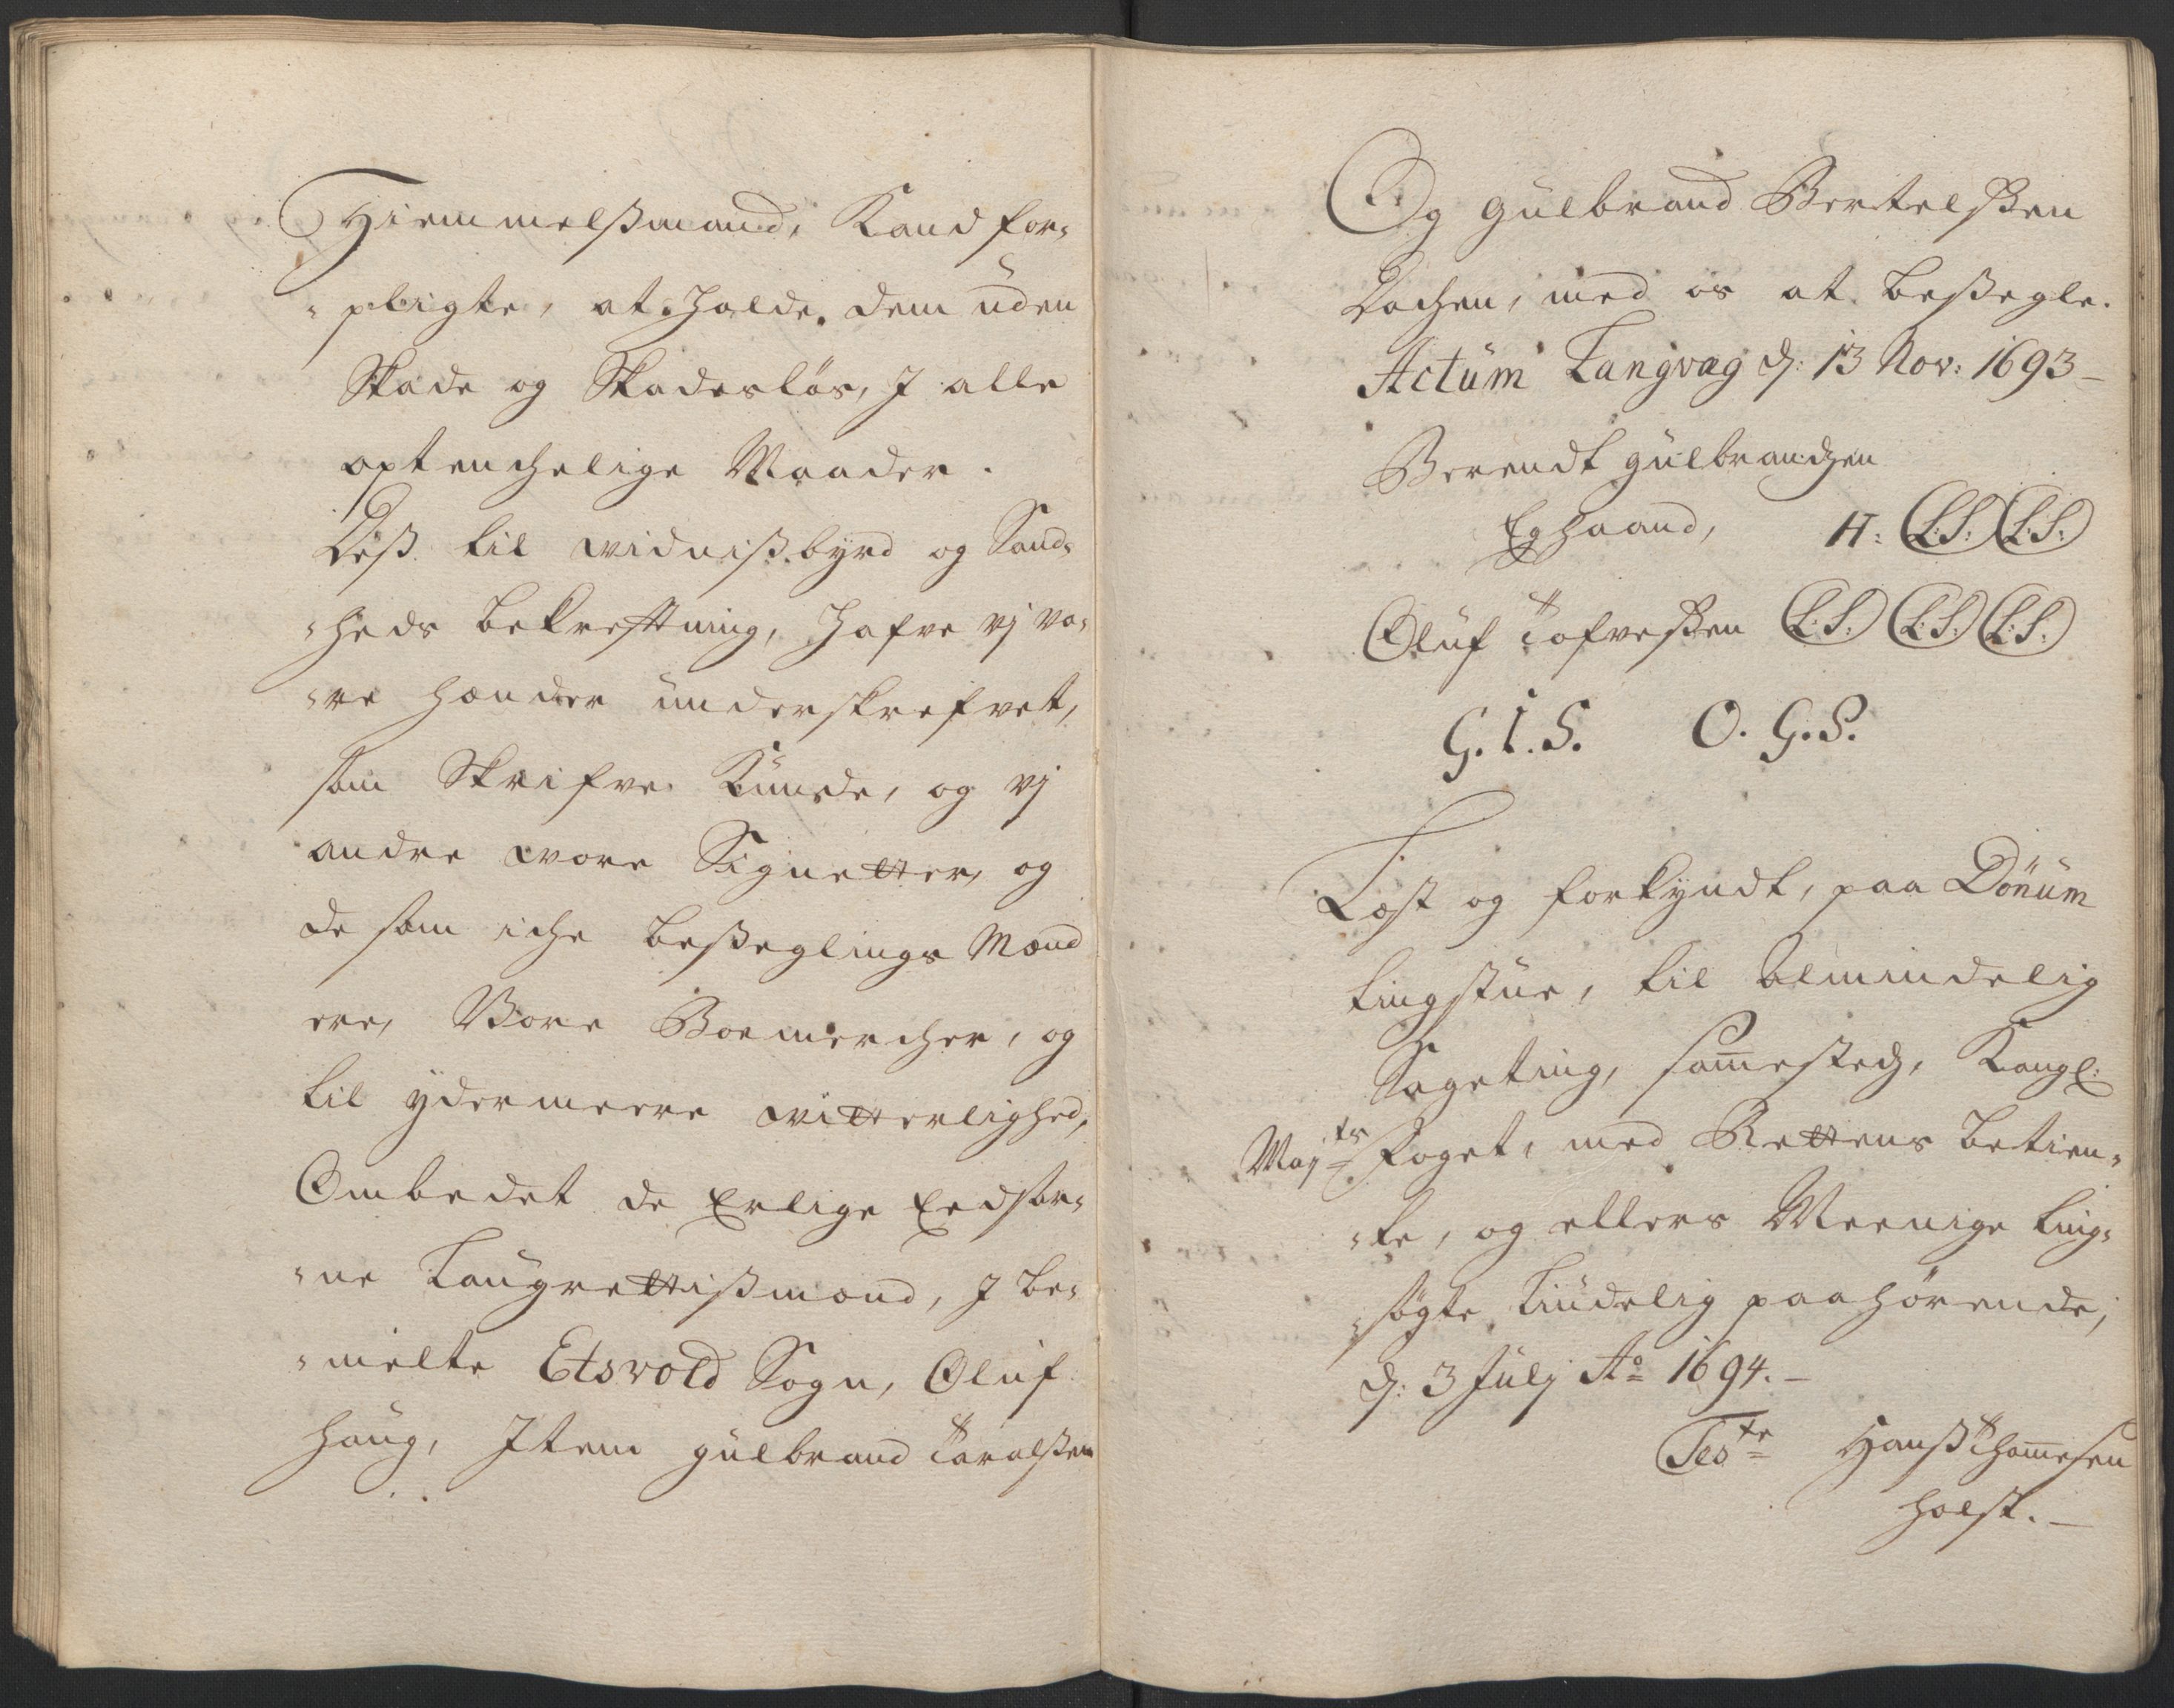 Hiemmelsmand, Kand for-
-pligte, at holde dem uden
Skade og Skadesløs, J alle
optenchelige Maader.
Diß til vidnißbyrd og Sand-
-heds bekreftning, hafve vj vo-
-re hænder underskrefvet,
som Skrifve Kunde, og vj
andre vore Signetter, og
de som iche beßeglings Mænd
ere, Vore Boemercher, og
til ydermeere vitterlighed,
Ombedet de Erlige Eedsor-
-ne Laugrettißmænd, J be-
-melte Etsvold Sogn, Oluf
Haug, Jtem gulbrand Taralßen
Og gulbrand Bertelßen
Dochen, med os at beßegle.
Actum Tangvag d: 13 Nov: 1693 –
Berendt gulbrandzen
Eghaand, H: L.S. L.S.
Oluf Tofveßen L.S. L.S. L.S.
G. I. S. O. G. S.
Læst og forkyndt, paa Dönum
tingstue, til Almindelig
Sageting, sammestedz, Kongl:
Majts foget, med Rettens betien-
-te, og ellers Meenige ting-
-søgte tiudelig paahørende,
d: 3 Julj Ao 1694. –
Teste Hanß Thommesen
Holst. –